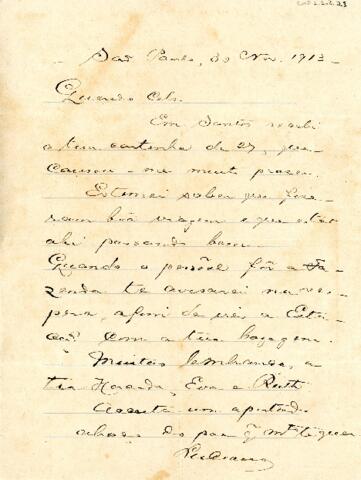 São Paulo, 30 Nov. 1913
Querido Celso.
Em Santos recebi
a tua cartinha de 27, que
causou-me muito prazer.
Estimei saber que fize-
ram bôa viagem e que estão
ahi passando bem.
Quando o pessôal fôr a Fa-
zenda te avisarei na ves-
pera, afim de ires a Esta-
ção com a tua bagagem.
Muitas lembranças, a
tia Eva e Ruth
Aceita um apertado
abraço do pae q. mto te quer